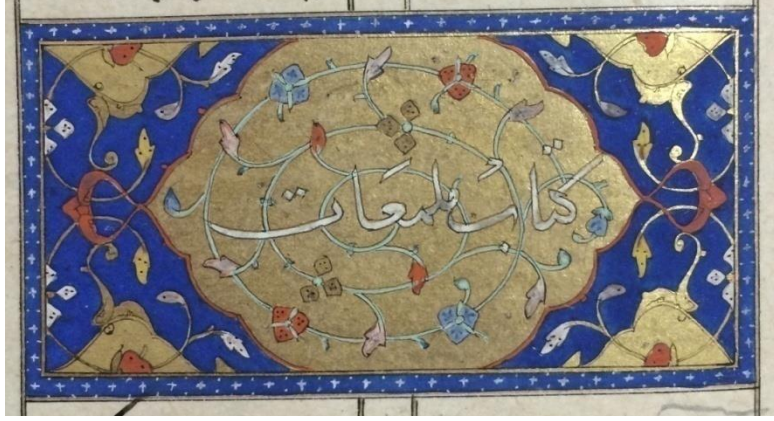 کتاب ملمعات